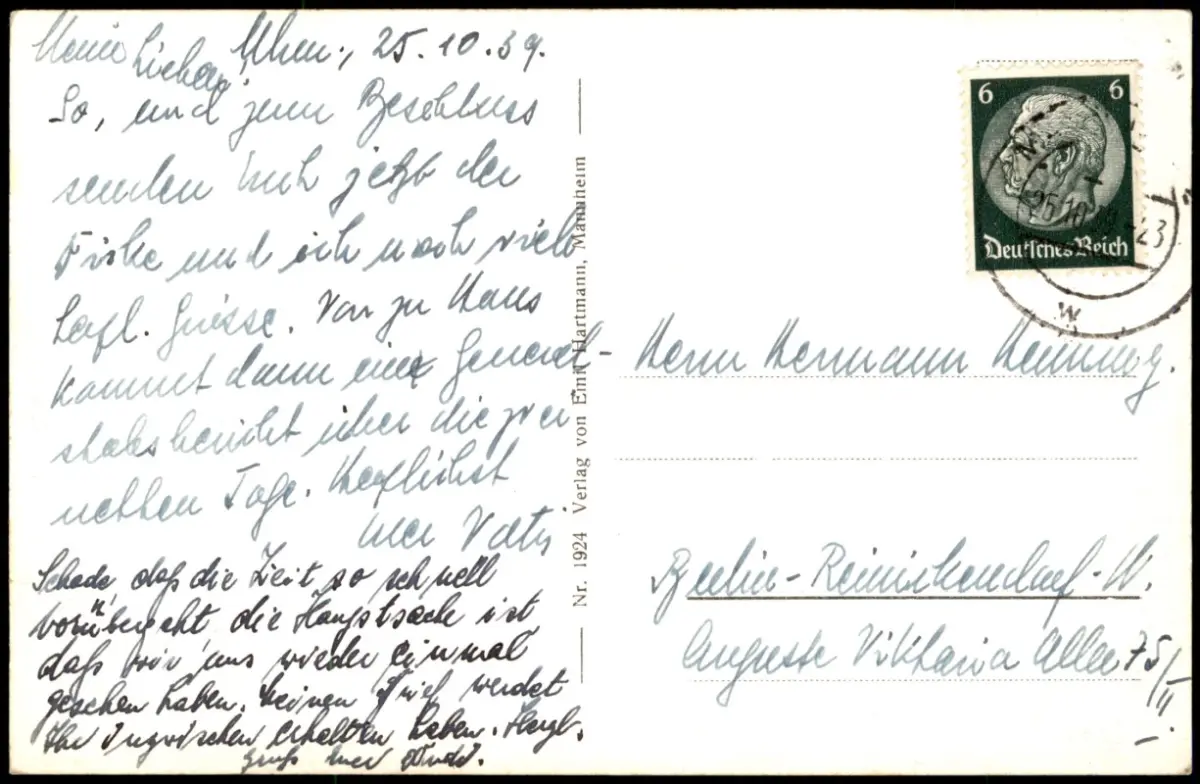 Meine Lieben! Mhm., 25.10.39.
So, und zum Beschluss
senden Euch jetzt der
und ich noch viele
herzl. Grüsse. Von zu Haus
kommt dann ein General-
stabsbericht über die zwei
netten Tage. Herzlichst
Euer Vati
Schade, daß die Zeit so schnell
vorübergeht, die Hauptsache ist
daß wir uns wieder einmal
gesehen haben. Meinen Brief werdet
Ihr inzwischen erhalten haben. Herzl.
Gruß Euer
Nr. 1924 Verlag von Emil Hartmann, Mannheim
6 6
Deutsches Reich
25.10.39 -23
Herrn Hermann Hennig.
Berlin-Reinickendorf-W.
Auguste Viktoria Allee 75/II.